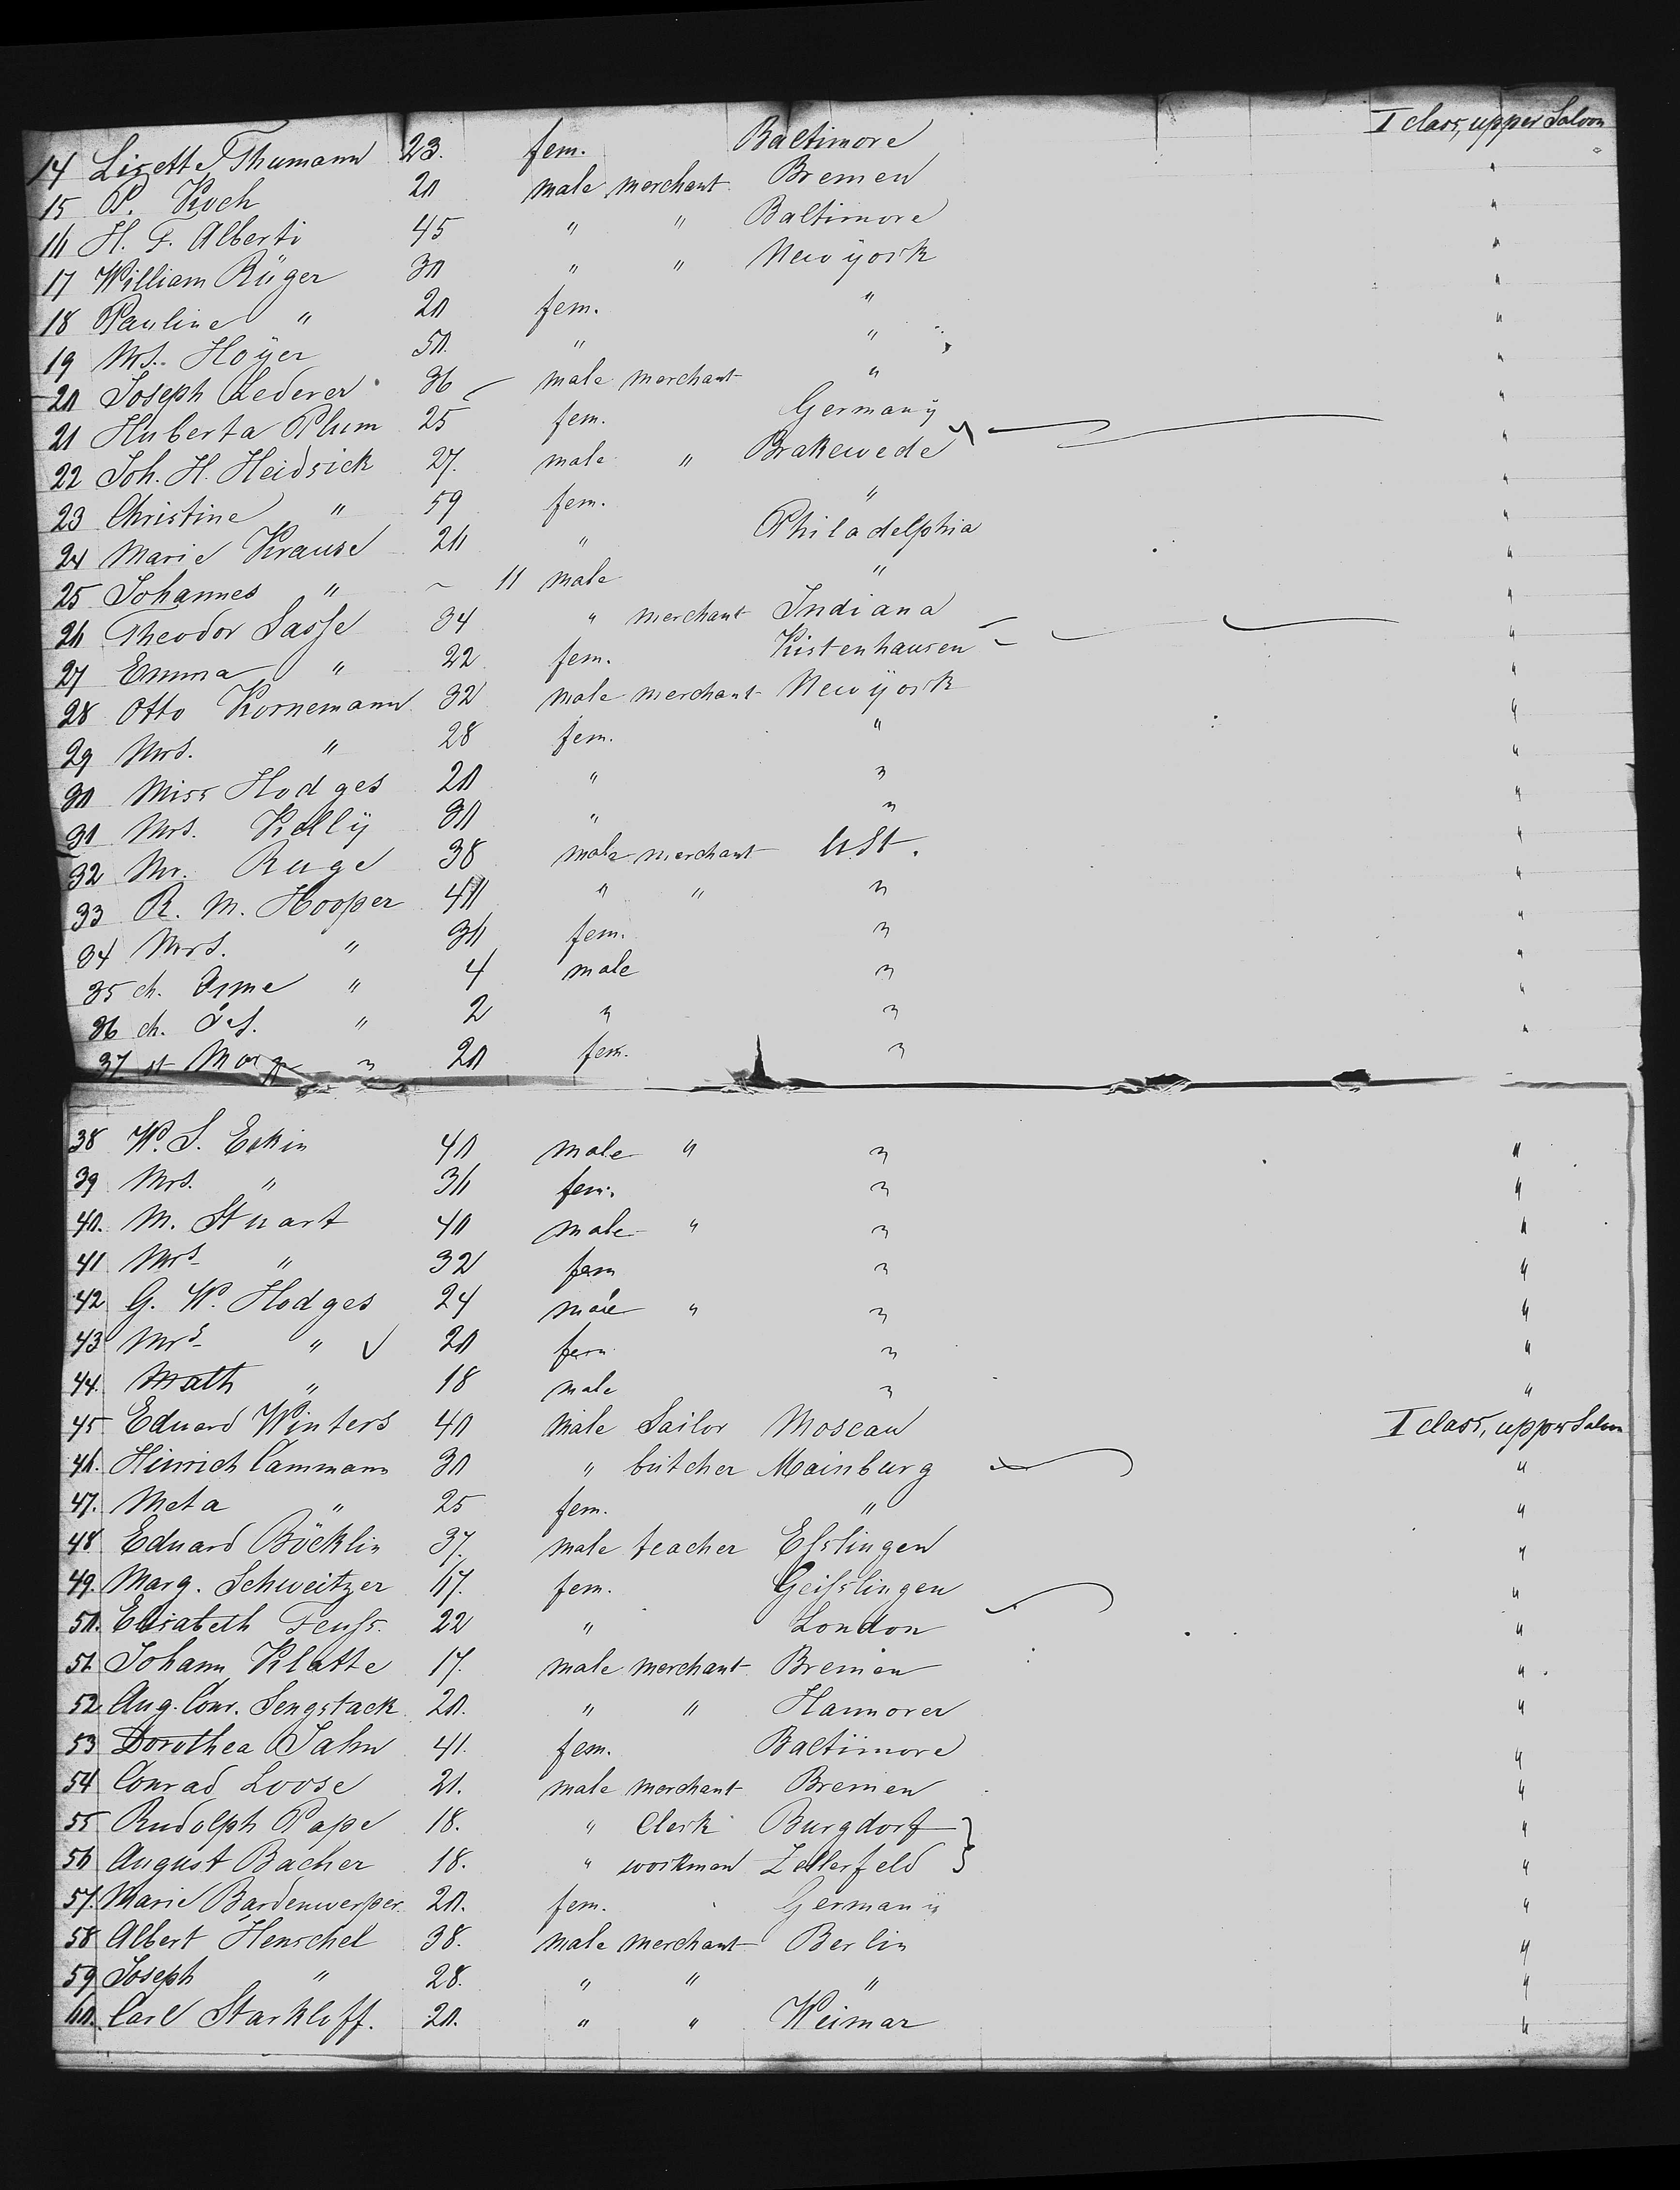 14 Lisette Thumann 23. fem. Baltimore I class, upper Saloon
15 P. Koch 20 male merchant Bremen "
16 H. F. Alberti 45 " " Baltimore "
17 William Rüger 30 " " New ÿork "
18 Pauline " 20 fem. " "
19 Mrs. Hoÿer 50. " " "
20 Joseph Lederer 36 male merchant " "
21 Huberta Plum 25 fem. Germanÿ "
22 Joh. H. Heidsick 27. male " Brakewede "
23 Christine " 59 fem. " "
24 Marie Krause 26 " Philadelphia "
25 Johannes " ~ 11 male " "
26 Theodor Sasse 34 " merchant Indiana "
27 Emma " 22 fem. Kistenhausen "
28 Otto Kornemann 32 male merchant New ÿork "
29 Mrs. " 28 fem. " "
30 Miss Hodges 20 " " "
31 Mrs. Kellÿ 30 " " "
32 Mr. Ruge 38 male merchant USt. "
33 R. M. Hooper 40 " " " "
34 Mrs. " 36 fem. " "
35 ch. " 4 male " "
36 ch. " 2 " " "
37 " 20 fem. " "
38 W. S. Eakin 40 male " " "
39 Mrs. " 36 fem. " "
40. M. Stuart 40 male " " "
41 Mrs " 32 fem " "
42 G. W. Hodges 24 male " " "
43 Mrs " 20 fem " "
44. Math " 18 male " "
45 Eduard Winters 40 male Sailor Moscau I class, upper Saloon
46. Heinrich Cammann 30 " butcher Mainburg "
47. Meta " 25 fem. " "
48 Eduard Böcklin 37. male teacher Esslingen "
49. Marg. Schweitzer 17. fem. Geisslingen "
50. Elisabeth Feuss. 22 " London "
51. Johann Klatte 17. male merchant Bremen "
52 Aug. Conr. Sengstack 20. " " Hannover "
53 Dorothea Jahn 41. fem. Baltimore "
54 Conrad Loose 21. male merchant Bremen "
55 Rudolph Pape 18. " Clerk Burgdorf "
56 August Bacher 18. " workman Zellerfeld "
57. Marie Bardenwerper 20. fem. Germanÿ "
58 Albert Henschel 38. male merchant Berlin "
59 Joseph " 28. " " " "
60. Carl Starkloff. 20. " " Weimar "